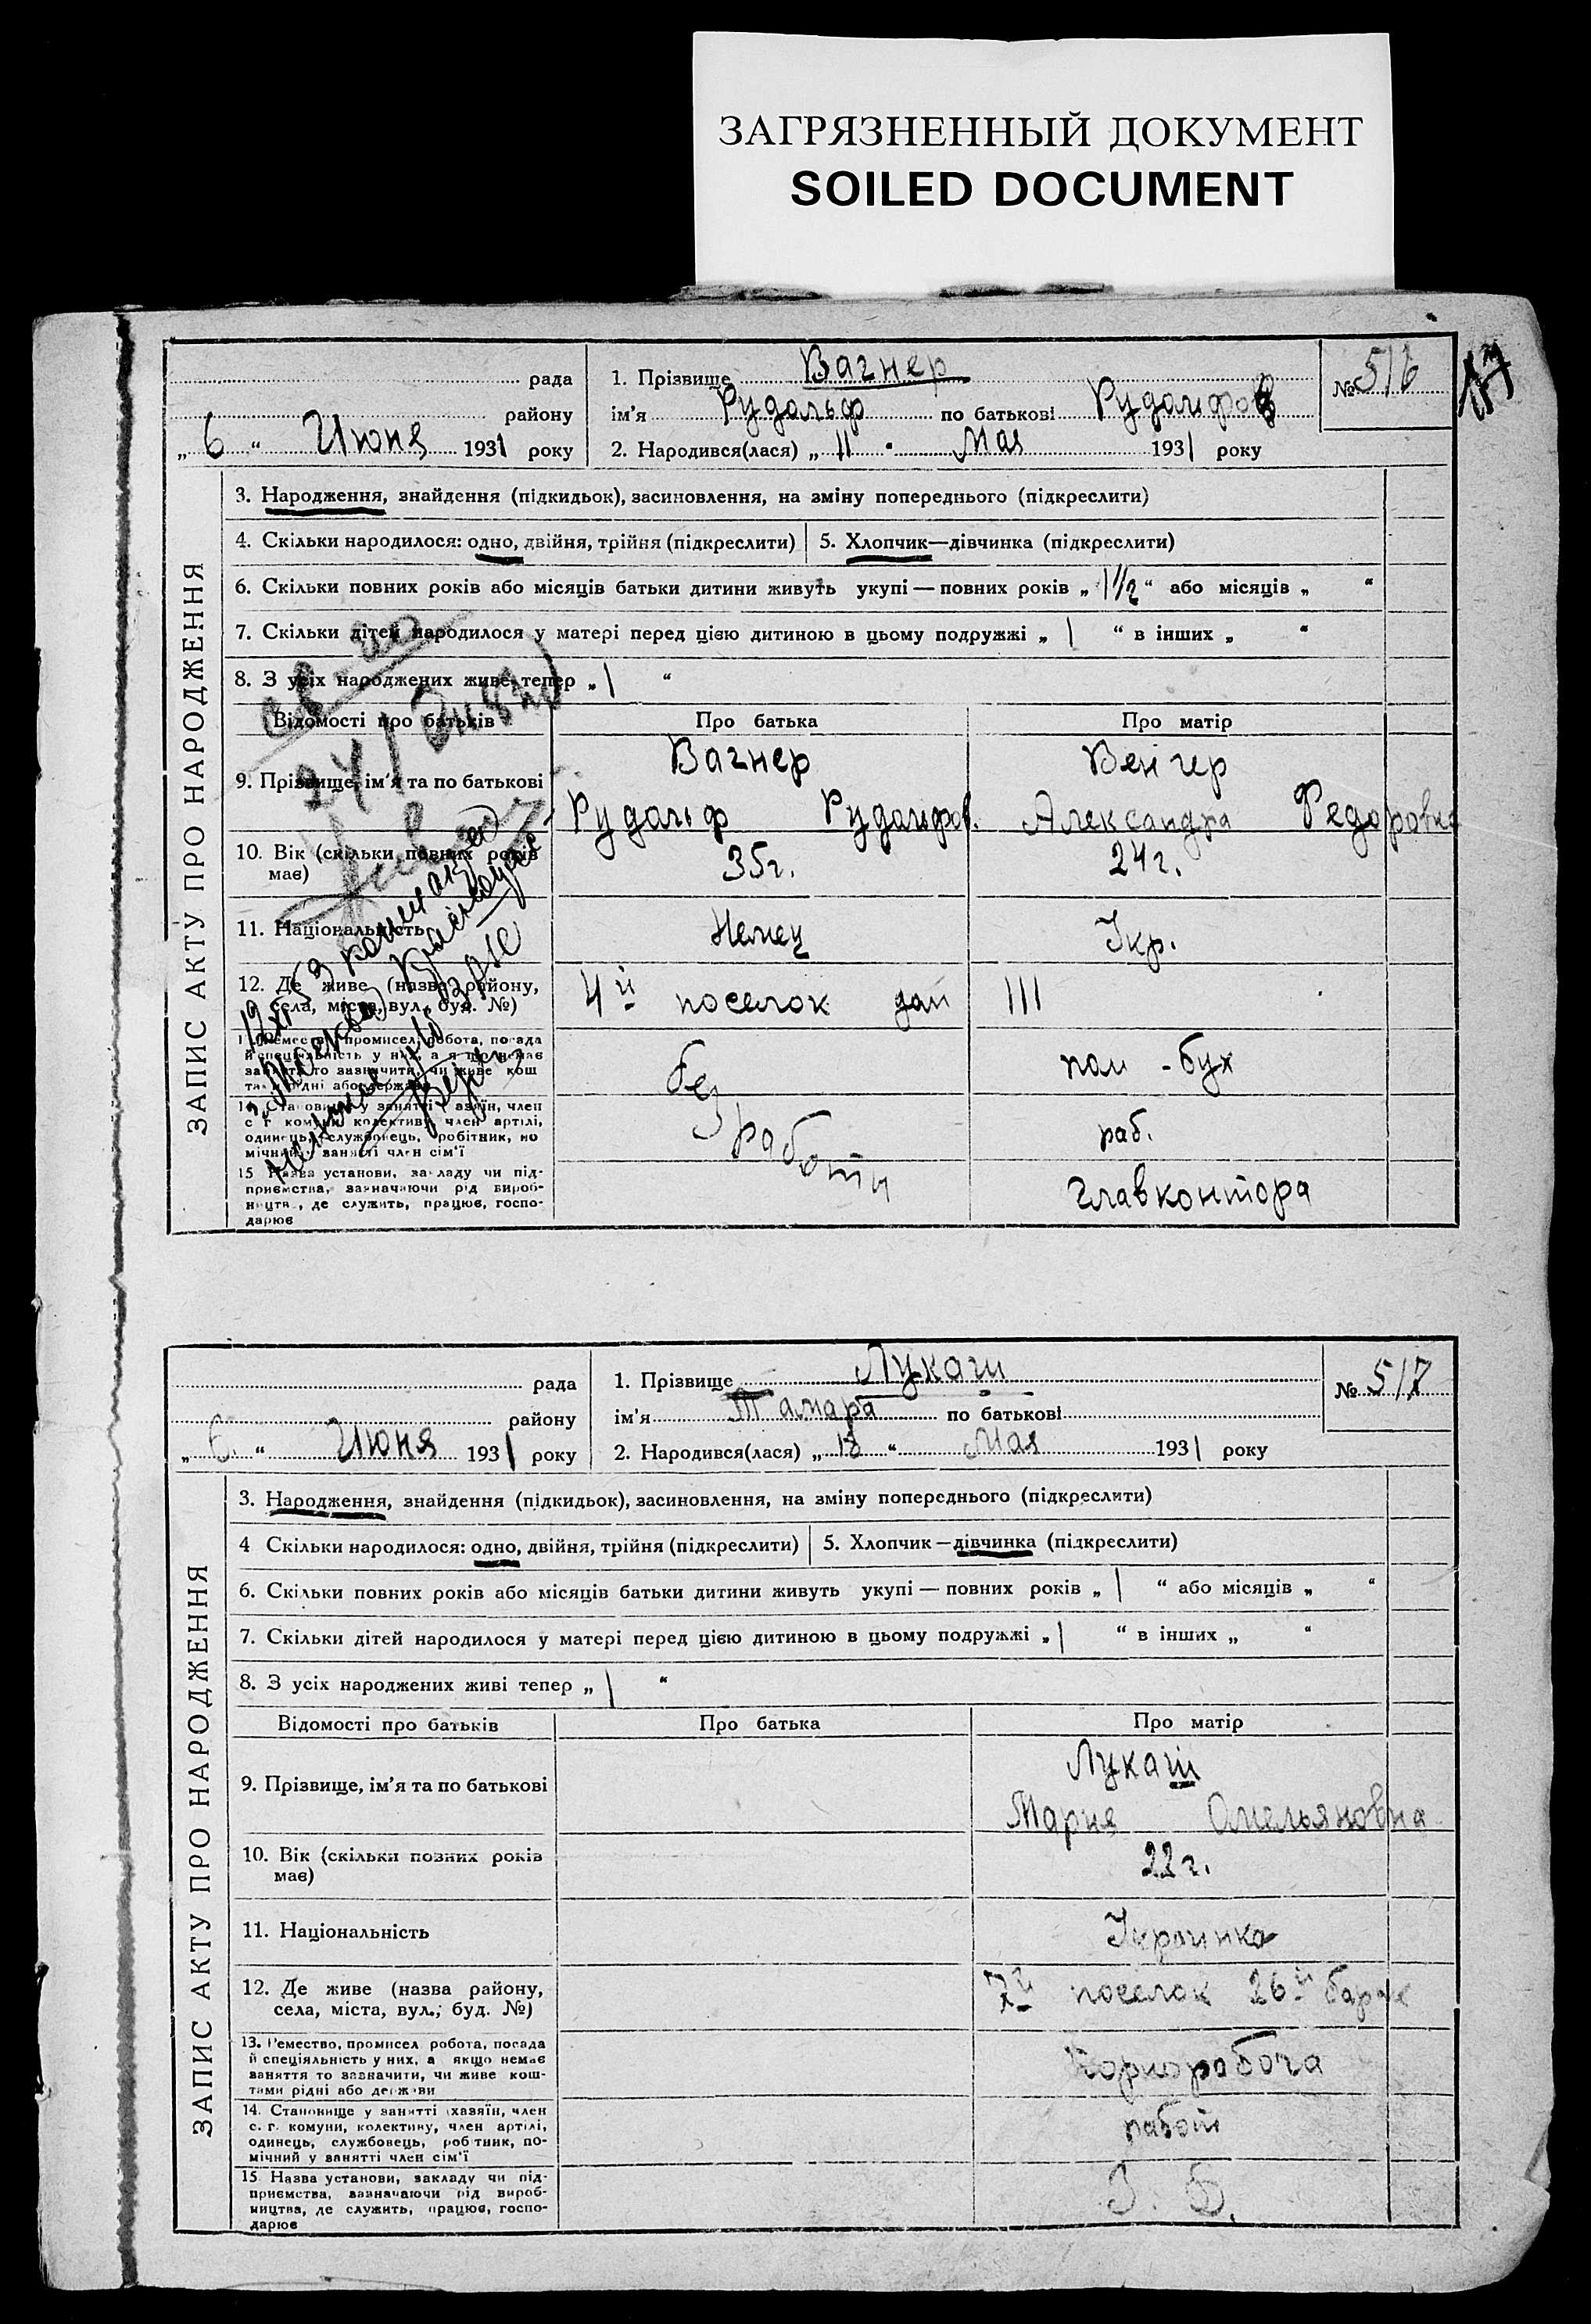 ЗАГРЯЗНЕННЫЙ ДОКУМЕНТ
SOILED DOCUMENT
17
рада
району
„ 6 “ Июня 1931 року
1. Прізвище Вагнер
ім'я Рудольф по батькові Рудольфов
2. Народився(лася) „ 11 “ Мая 1931 року
№ 516
ЗАПИС АКТУ ПРО НАРОДЖЕННЯ
3. Народження, знайдення (підкидьок), засиновлення, на зміну попереднього (підкреслити)
4. Скільки народилося: одно, двійня, трійня (підкреслити) 5. Хлопчик—дівчинка (підкреслити)
6. Скільки повних років або місяців батьки дитини живуть укупі — повних років „ 1 1/2 “ або місяців „ “
7. Скільки дітей народилося у матері перед цією дитиною в цьому подружжі „ 1 “ в інших „ “
8. З усіх народжених живе тепер „ 1 “
Відомості про батьків Про батька Про матір
9. Прізвище, ім'я та по батькові
Вагнер Венгер
Рудольф Рудольфов. Александра Федоровна
10. Вік (скільки повних років
має)
35г. 24г.
11. Національність Немец Укр.
12. Де живе (назва району,
села, міста, вул., буд. №)
4й поселок дом 111
13. Ремество, промисел, робота, посада
й спеціяльність у них, а якщо немає
заняття то зазначити, чи живе кош-
тами рідні або держави
без пом - бух
14. Становище у занятті (хазяїн, член
с. г. комуни, колективу, член артілі,
одинець, службовець, робітник, по
мічний у занятті член сім'ї
работы раб.
15 Назва установи, закладу чи під-
приємства, зазначаючи рід вироб-
ництв, де служить, працює, госпо-
дарює
Главконтора
рада
району
„ 6. “ Июня 1931 року
1. Прізвище Лукаш
ім'я Тамара по батькові
2. Народився(лася) „ 18 “ Мая 1931 року
№ 517
ЗАПИС АКТУ ПРО НАРОДЖЕННЯ
3. Народження, знайдення (підкидьок), засиновлення, на зміну попереднього (підкреслити)
4 Скільки народилося: одно, двійня, трійня (підкреслити) 5. Хлопчик—дівчинка (підкреслити)
6. Скільки повних років або місяців батьки дитини живуть укупі — повних років „ 1 “ або місяців „ “
7. Скільки дітей народилося у матері перед цією дитиною в цьому подружжі „ 1 “ в інших „ “
8. З усіх народжених живі тепер „ 1 “
Відомості про батьків Про батька Про матір
9. Прізвище, ім'я та по батькові
Лукаш
Мария Омельяновна
10. Вік (скільки повних років
має)
22г.
11. Національність Украинка
12. Де живе (назва району,
села, міста, вул., буд. №)
7й поселок 26й барак
13. Ремество, промисел робота, посада
й спеціяльність у них, а якщо немає
заняття то зазначити, чи живе кош-
тами рідні або держави
Чорноробоча
14. Становище у занятті хазяїн, член
с. г. комуни, колективу, член артілі,
одинець, службовець, робітник, по-
мічний у занятті член сім'ї
работ
15 Назва установи, закладу чи під-
приємства, зазначаючи рід вироб-
ництва, де служить, працює, госпо-
дарює